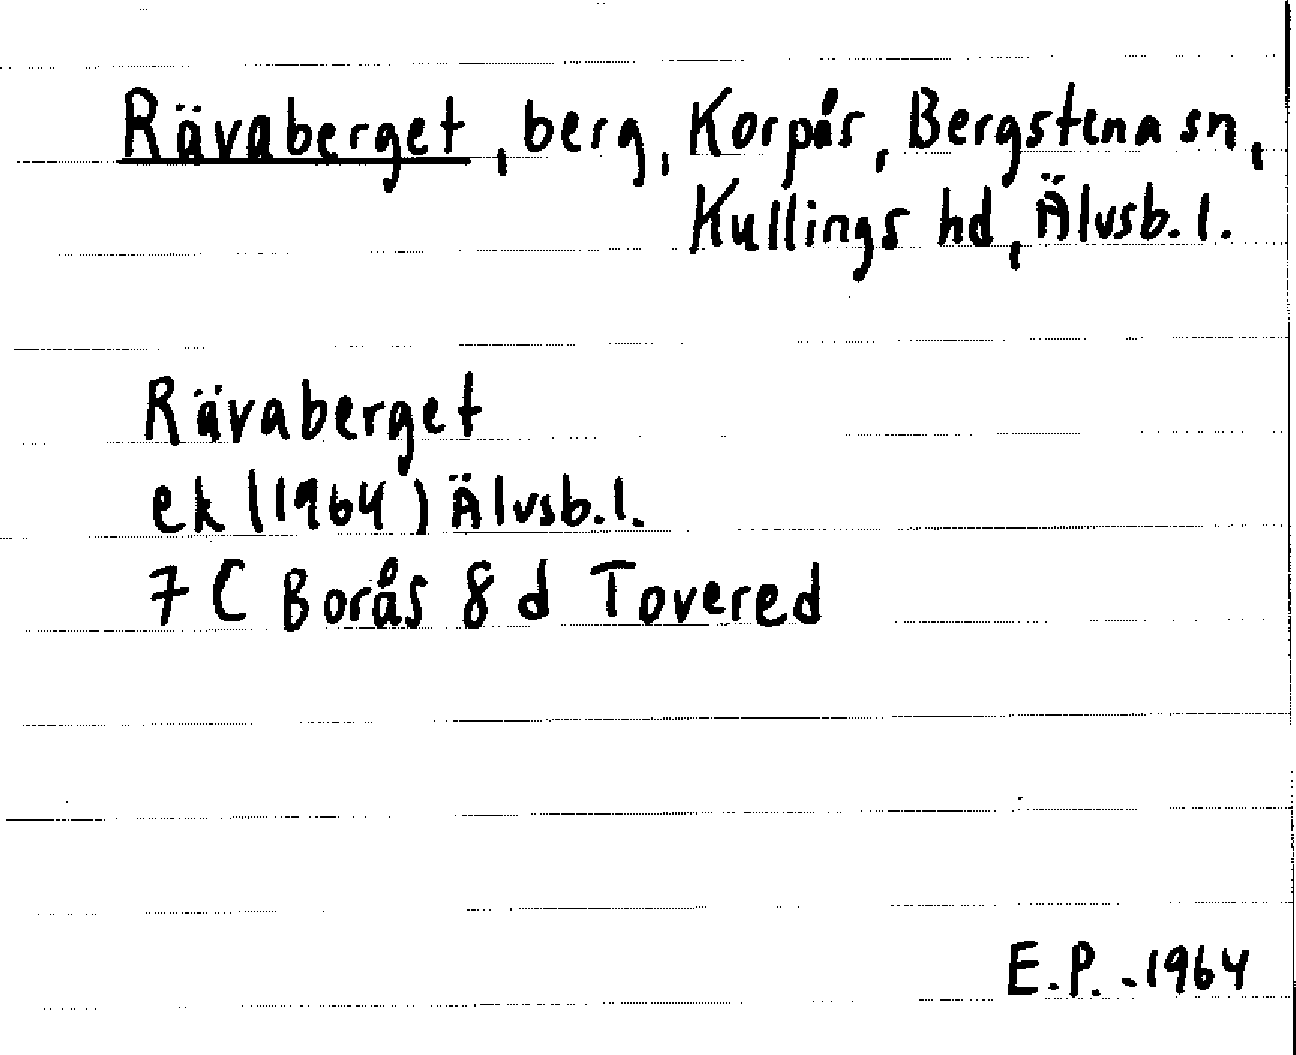 Rävaberget, berg, Korpås, Bergstena sn,
Kullings hd, Älvsb. l.
Rävaberget
ek (1964) Älvsb. l.
7 C Borås 8 d Tovered
E.P. -1964